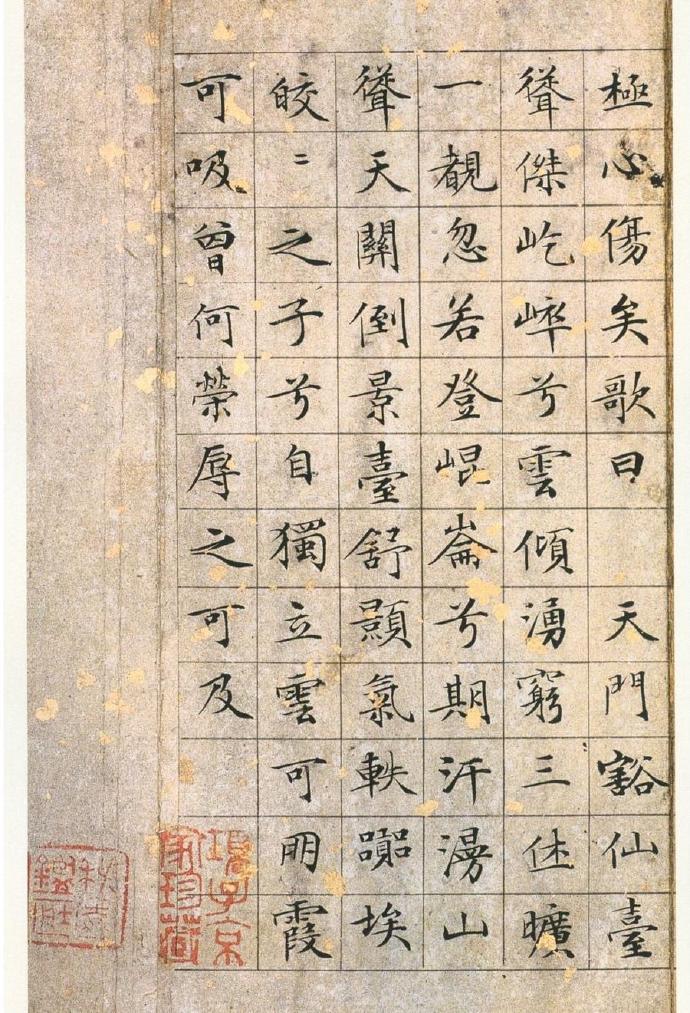 極心傷矣歌曰　天門豁仙臺
聳傑屹崒兮雲傾湧窮三休曠
一覩忽若登崐崙兮期汗漫山
聳天關倒景臺舒顥氣軼囂埃
皎〻之子兮自獨立雲可朋霞
可吸曾何榮辱之可及
項子京
家珍藏